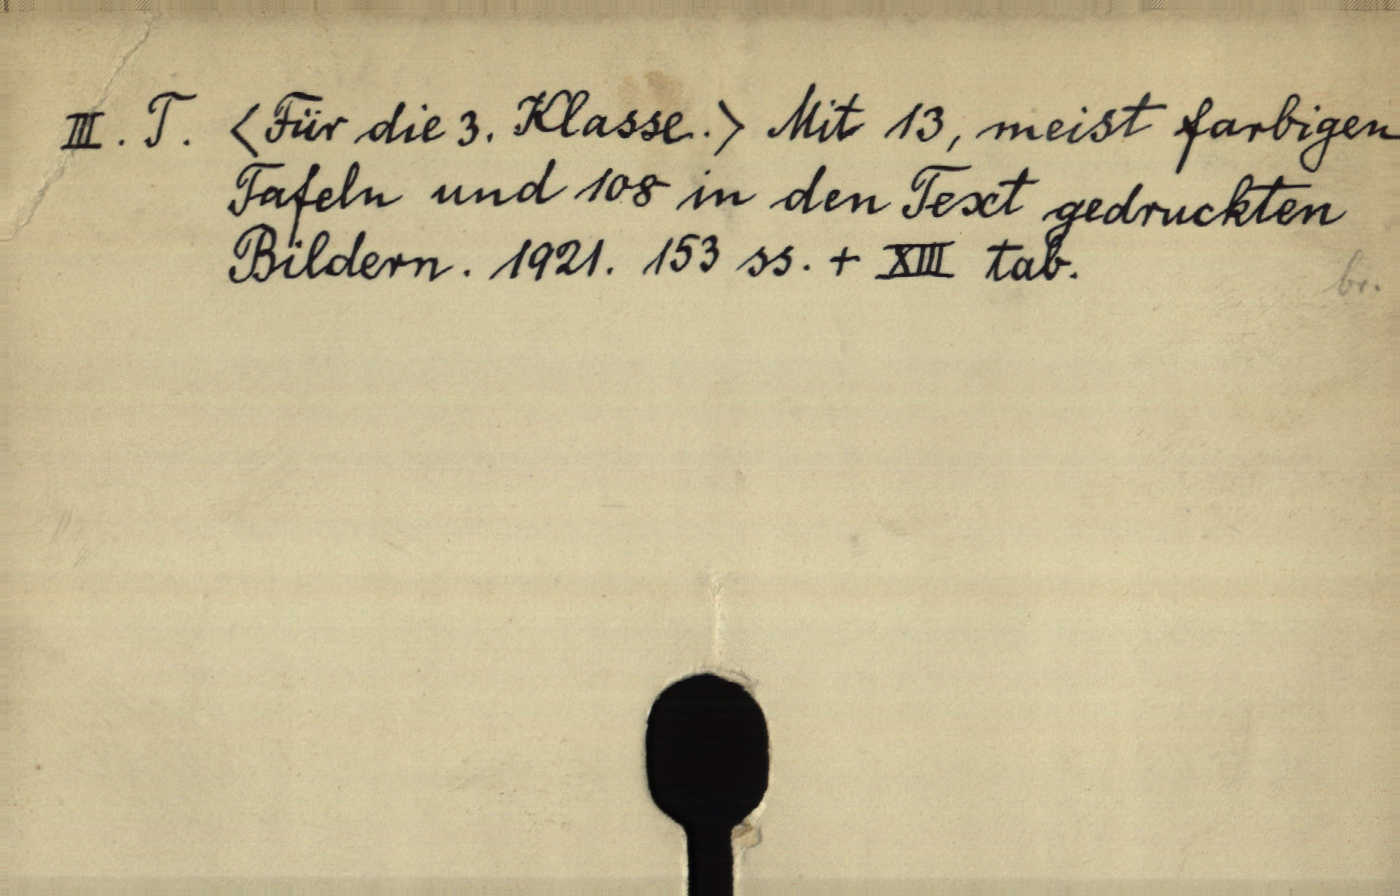 III. T. <Für die 3. Klasse.> Mit 13, meist farbigen
Tafeln und 108 in den Text gedruckten
Bildern. 1921. 153 ss. + XIII tab.
br.